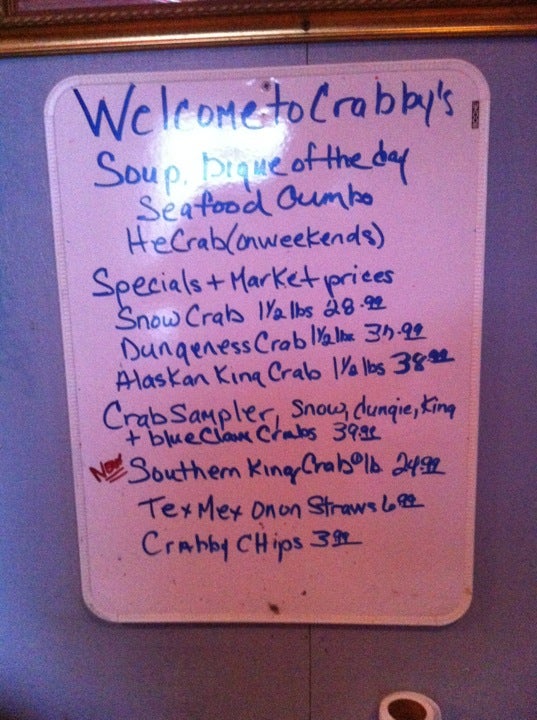 Welcome to Crabby's
Soup, bique of the day
Seafood Gumbo
HeCrab (on weekends)
Specials + Market prices
Snow Crab 1½ lbs 28.99
Dungeness Crab 1½ lbs
Alaskan King Crab 1½ lbs 38.99
Crab Sampler, Snow, dungie, King
+ blue Claw Crabs 39.99
New Southern King Crab lb 24.99
Tex Mex Onon Straws 6.99
Crabby CHips 3.99